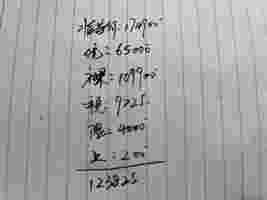 指导价:174900
优:65000
裸:109900
税:9725
险:4000
上:200
123825